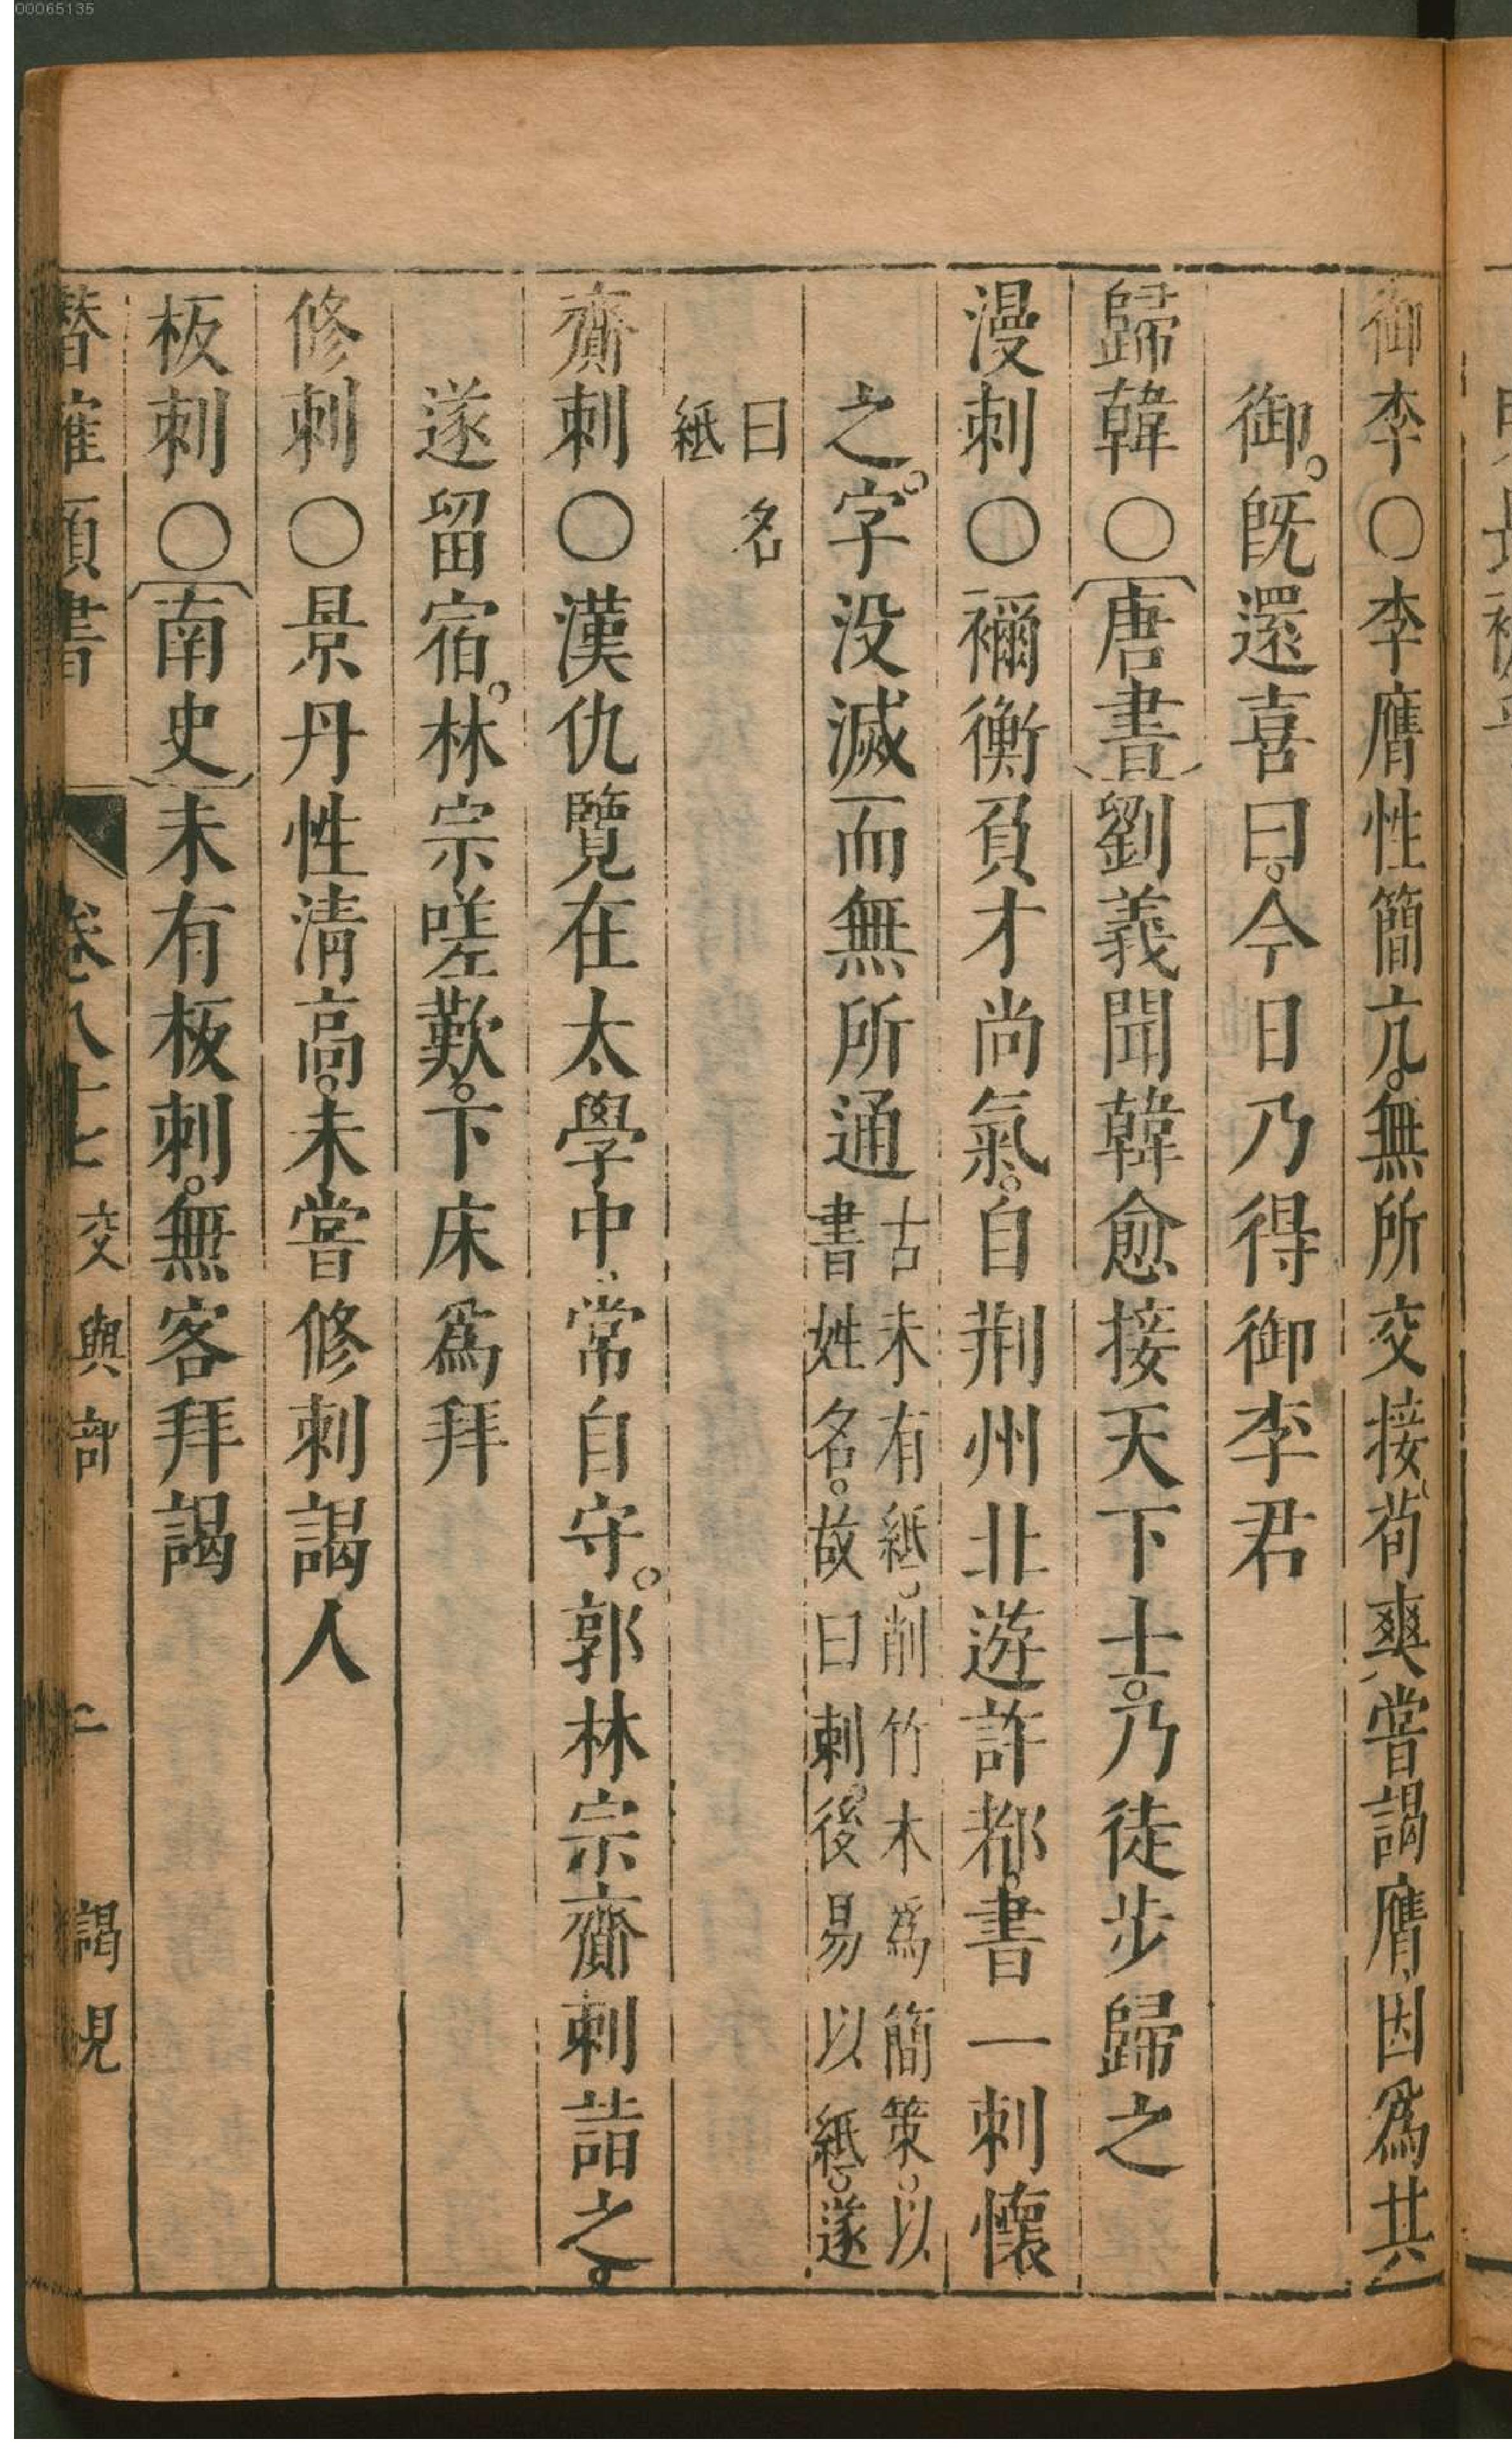 00065135
御李○李膺性簡亢。無所交接、荀爽嘗謁膺、因爲其
御。旣還喜曰。今日乃得御李君
歸韓○〔唐書〕劉義聞韓愈接天下士。乃徒步歸之
漫刺○禰衡負才尚氣。自荆州北遊許都。書一刺懷
之。字没滅而無所通
古未有紙。削竹木爲簡策。以
書姓名。故曰刺。後易以紙。遂
曰名
紙
齎刺○漢仇覽在太學中、常自守。郭林宗齎刺詣之。
遂留宿。林宗嗟歎。下床爲拜
修刺○景丹性淸高。未嘗修刺謁人
板刺○〔南史〕未有板刺。無客拜謁
潛確類書 卷八十七 交與部 二 謁見